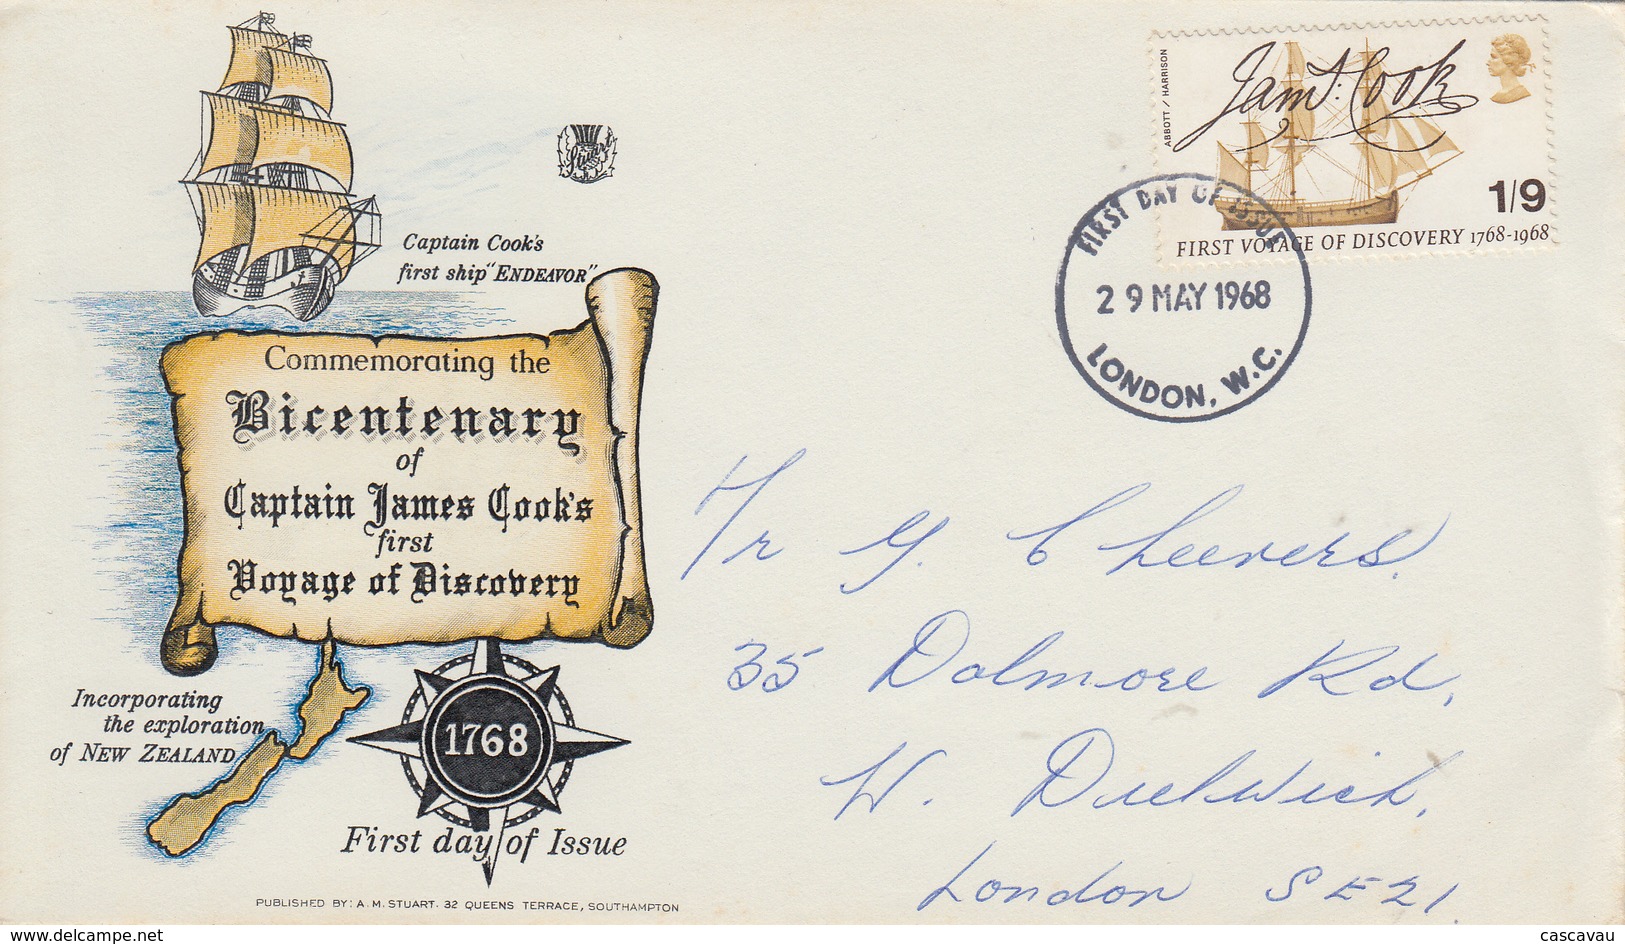 Stuart
Captain Cook's
first ship "ENDEAVOR"
Commemorating the
Bicentenary
of
Captain James Cook's
first
Voyage of Discovery
Incorporating
the exploration
of NEW ZEALAND
1768
First day of Issue
PUBLISHED BY: A. M. STUART. 32 QUEENS TERRACE, SOUTHAMPTON
ABBOTT / HARRISON
Jams: Cook
1/9
FIRST VOYAGE OF DISCOVERY 1768-1968
FIRST DAY OF ISSUE
29 MAY 1968
LONDON, W.C.
Mr G. Cheevers.
35 Dalmore Rd,
W. Dulwich,
London SE21.
www.delcampe.net
cascavau